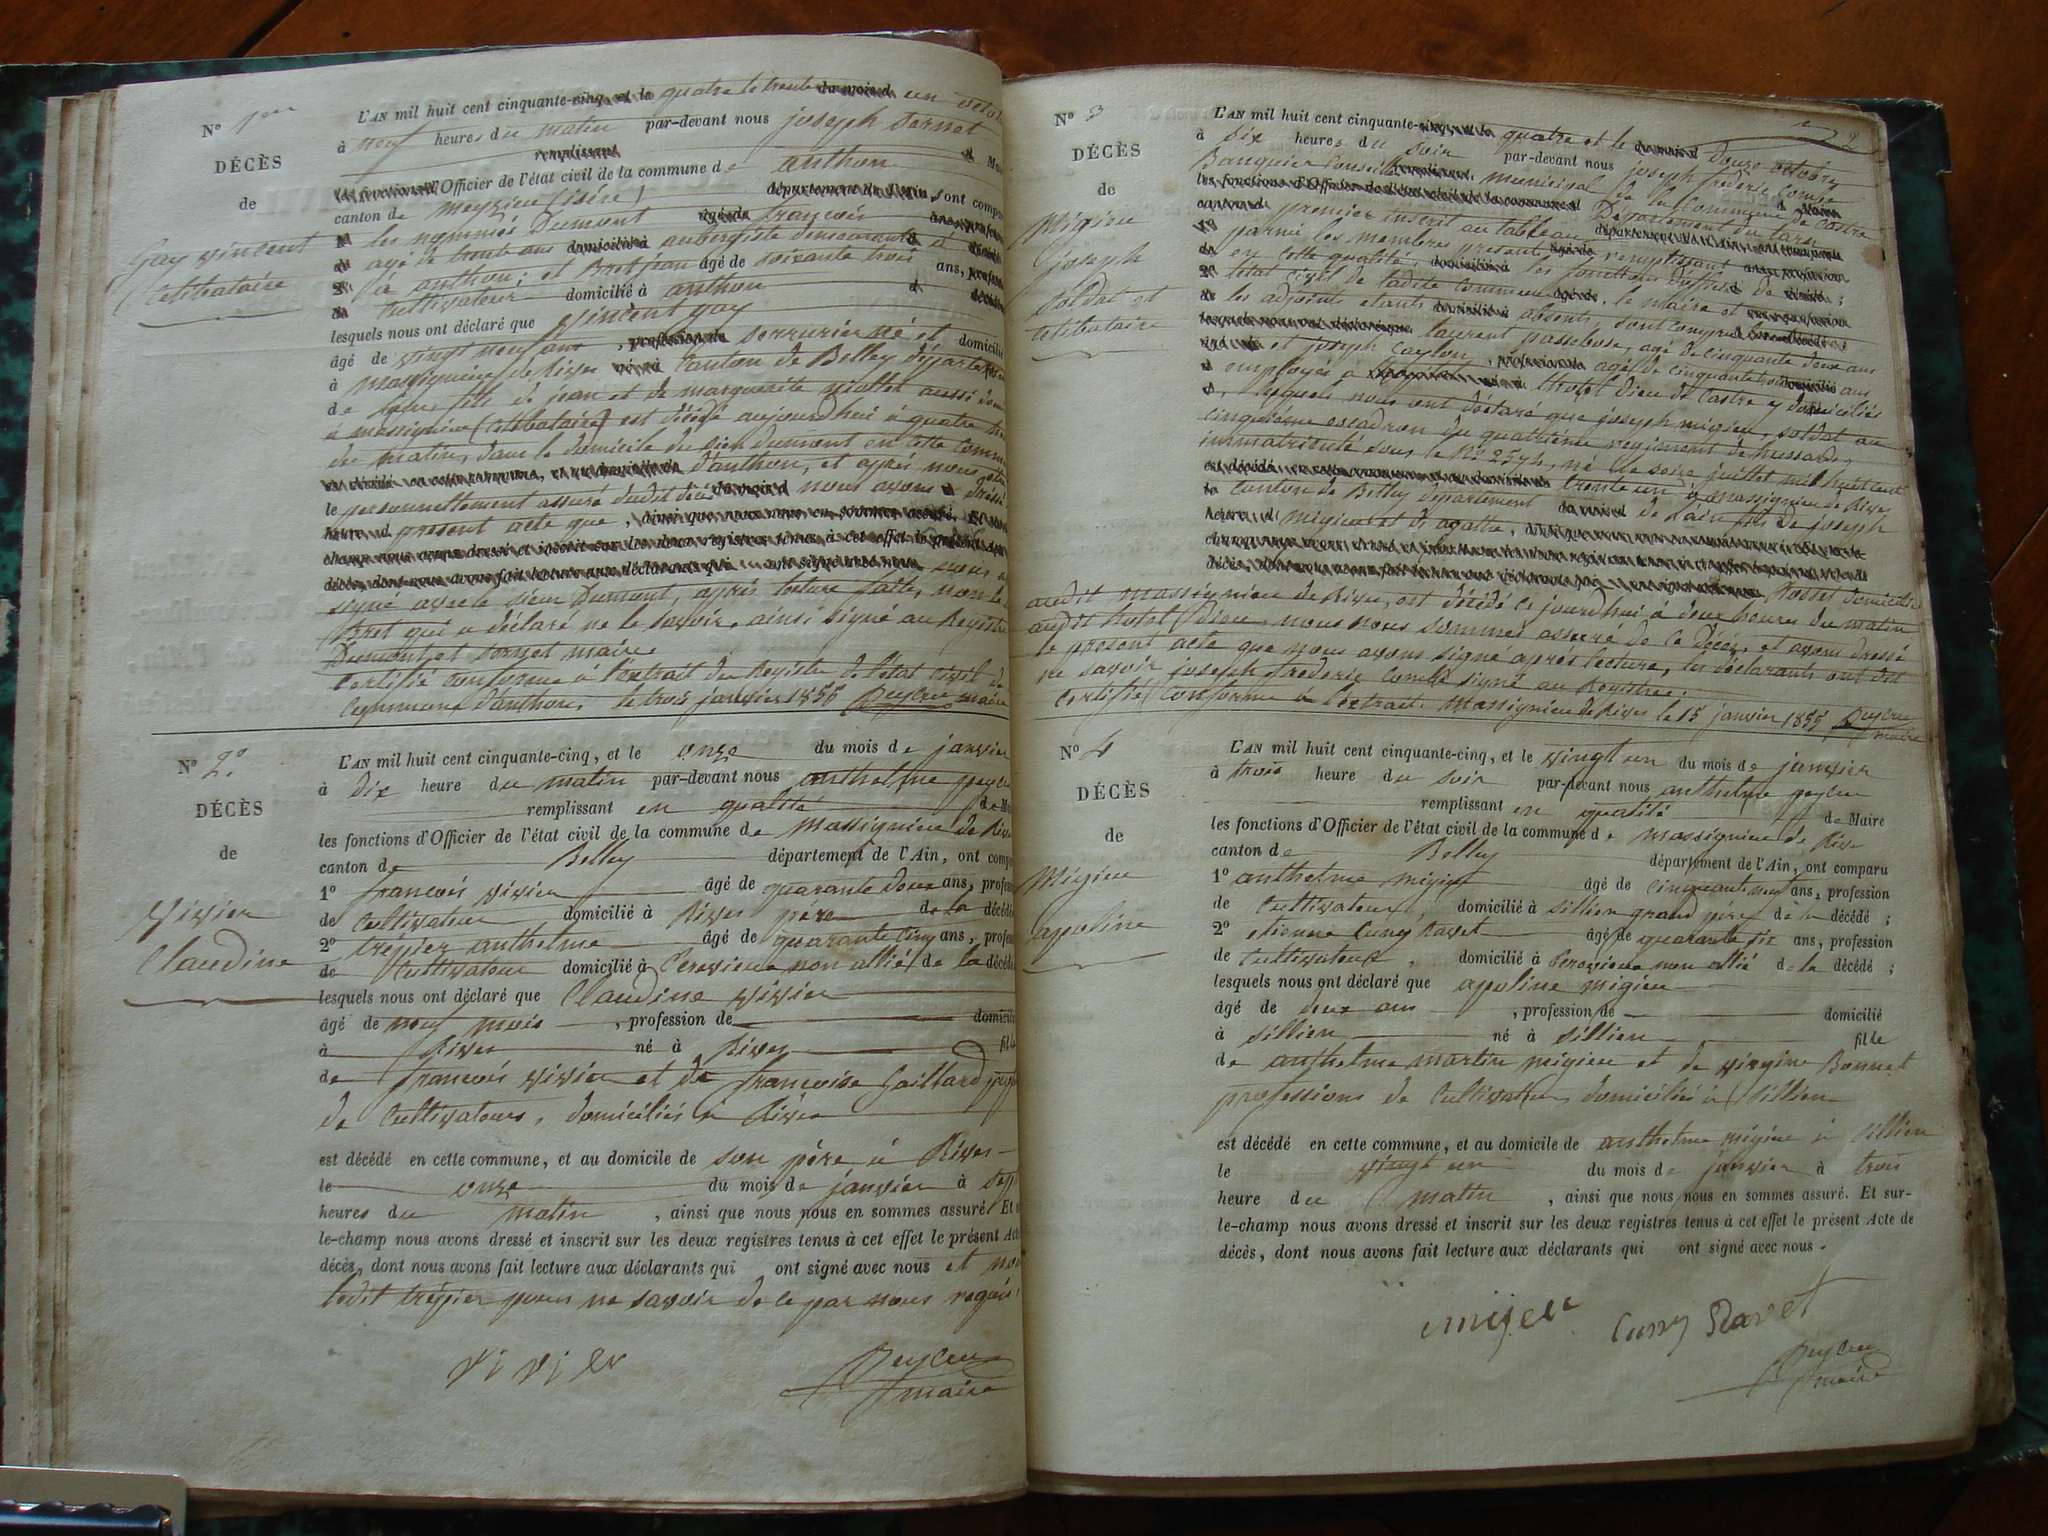 N° 1er
DÉCÈS
de
Gay vincent
Celibataire
L'AN mil huit cent cinquante-cinq, et le quatre le trente du mois d un octob
à neuf heures du matin par-devant nous joseph Sornet
remplissant d Mai
les fonctions d'Officier de l'état civil de la commune de anthon
canton de meyzieu (isère) département de l'Ain, sont compa
les nommés Dumont âgé de françois ans, profes
agé de trente ans domicilié à aubergiste demeurant à
2° a anthon; et Bret jean âgé de soixante trois ans, profess
de Cultivateur domicilié à anthon d décédé
lesquels nous ont déclaré que vincent gay
âgé de vingt neuf ans, profession de serrurier né et domicilié
à massignieu de Rives né à Canton de Belley départe
de fils de jean et de marguerite aussi
à massignieu (celibataire) est décédé aujourd'hui à quatre
du matin, dans le domicile du sieur dumont en cette comm
est décédé en cette commune, et au domicile de d'anthon, et après nous être
le personnellement assuré dudit décès du mois d nous avons dressé
heure d present acte que, ainsi que nous nous en sommes assuré. Et sur-
champ nous avons dressé et inscrit sur les deux registres tenus à cet effet le présent Acte
décès, dont nous avons fait lecture aux déclarants qui ont signé avec nous nous a
signé avec le sieur Dumont, après lecture faite, non le
Bret qui a déclaré ne le savoir, ainsi signé au Registre
Dumont et Sornet maire
Certifié conforme à l'extrait du Registre de l'état civil de
Commune d'anthon, le trois janvier 1855 Peyceu maire
N° 2°
DÉCÈS
de
Vivier
Claudine
L'AN mil huit cent cinquante-cinq, et le onze du mois de janvier
à dix heure du matin par-devant nous anthelme peyceu
remplissant en qualité de Mai
les fonctions d'Officier de l'état civil de la commune de massignieu de Rive
canton de Belley département de l'Ain, ont compa
1° francois vivier âgé de quarante deux ans, profess
de Cultivateur domicilié à Rives père de la décédé
2° trepier anthelme âgé de quarante cinq ans, profess
de Cultivateur domicilié à Peresieux non allié de la décédé
lesquels nous ont déclaré que Claudine vivier
âgé de neuf mois, profession de domicilié
à Rives né à Rives fille
de francois vivier et de françoise Gaillard prof
de Cultivateurs, domiciliés à Rives
est décédé en cette commune, et au domicile de son père à Rives
le onze du mois de janvier à sept
heures du matin, ainsi que nous nous en sommes assuré. Et s
le-champ nous avons dressé et inscrit sur les deux registres tenus à cet effet le présent Acte
décès, dont nous avons fait lecture aux déclarants qui ont signé avec nous et non
ledit trepier pour ne savoir de ce par nous requis
vivier
Peyceu
maire
2
N° 3
DÉCÈS
de
Migieu
joseph
soldat et
celibataire
L'AN mil huit cent cinquante-cinq, et le quatre et le du mois d Douze octobre
à six heures du soir par-devant nous joseph frederic Combe
Banquier Conseiller remplissant municipal de la Commune de Castre
les fonctions d'Officier de l'état civil de la commune d Département du tarn
canton d premier inscrit au tableau département de l'Ain, ont comparu
parmi les membres present remplissant
en cette qualité, domicilié à les fonctions d'officier de
2° l'état civil de ladite Commune âgé de, le maire et
de les adjoints etants domicilié à absents, sont comparu
lesquels nous ont déclaré que laurent passebose, agé de cinquante deux ans
âgé de et joseph Caylon, profession de agé de cinquante trois ans
employés à né à l'hotel Dieu de Castre y domiciliés
lesquels nous ont déclaré que joseph migieu, soldat au
cinquième escadron du quatrième regiment de hussards,
immatriculé sous le N° 2574, né le seize juillet mil huit cent
trente un à massignieu de Rives
le Canton de Belley département du mois d de l'ain fils de joseph
heure d migieu et de agathe, ainsi que nous nous en sommes assuré. Et sur-le-
champ nous avons dressé et inscrit sur les deux registres tenus à cet effet le présent Acte de
décès, dont nous avons fait lecture aux déclarants qui ont signé avec nous Rosset domicilié
audit massignieu de Rives, est décédé ce jourd'hui à deux heures du matin
audit hotel Dieu, nous nous sommes assuré de ce décès, et avons dressé
le présent acte que nous avons signé après lecture, les déclarants ont dit
ne savoir joseph frederic Combe signé au Registre.
Certifié Conforme à l'extrait. Massignieu de Rives le 15 janvier 1855 Peyceu
maire
N° 4
DÉCÈS
de
Migieu
apoline
L'AN mil huit cent cinquante-cinq, et le vingt un du mois de janvier
à trois heure du soir par-devant nous anthelme peyceu
remplissant en qualité de Maire
les fonctions d'Officier de l'état civil de la commune de massignieu de Rive
canton de Belley département de l'Ain, ont comparu
1° anthelme migieu âgé de cinquante neuf ans, profession
de Cultivateur, domicilié à sillien grand père de la décédé;
2° etienne Cuny Ravet âgé de quarante six ans, profession
de Cultivateur, domicilié à Peresieux non allié de la décédé;
lesquels nous ont déclaré que apoline migieu
âgé de deux ans, profession de domicilié
à sillien né à sillien fille
de anthelme martin migieu et de virginie Bonnet
professions de Cultivateurs, domiciliés à sillien
est décédé en cette commune, et au domicile de anthelme migieu à sillien
le vingt un du mois de janvier à trois
heure du matin, ainsi que nous nous en sommes assuré. Et sur-
le-champ nous avons dressé et inscrit sur les deux registres tenus à cet effet le présent Acte de
décès, dont nous avons fait lecture aux déclarants qui ont signé avec nous.
migieu Cuny Ravet
Peyceu
maire